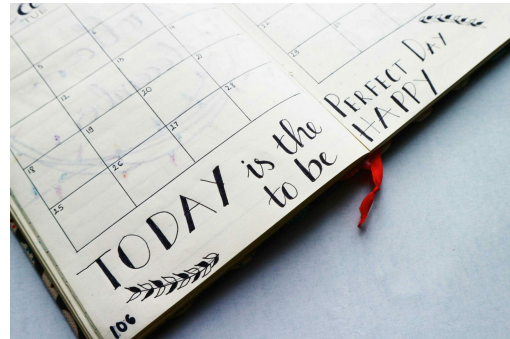 TUE
5
6
12
13
14
18
19
20
21
25
26
27
28
25
TODAY is the PERFECT DAY
to be HAPPY
106